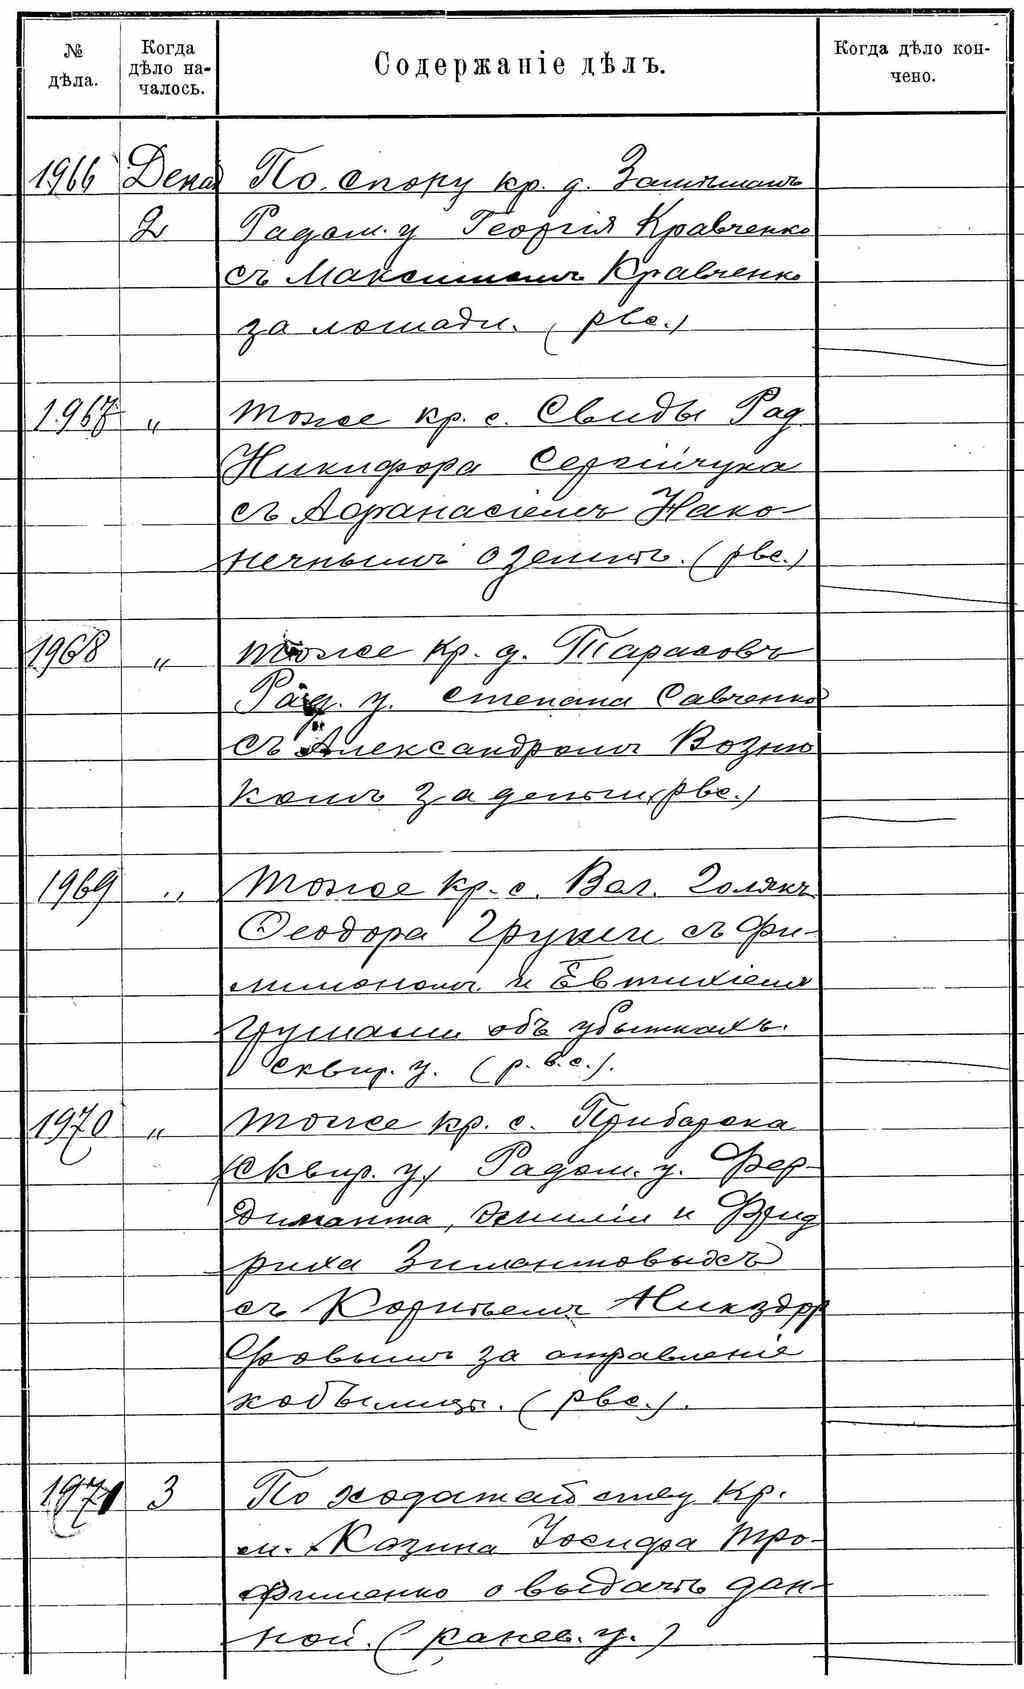 № дѣла.
Когда дѣло на-чалось.
Содержаніе дѣлъ.
Когда дѣло кон-чено.
1966 Декаб По спору кр. д.
2 Радом. у Георгія Кравченко
съ Максимомъ Кравченко
за лошади. (рвс.)
1967 „ тоже кр. с. Свиды Рад.
Никифора Сергійчука
съ Афанасіемъ Нако-
нечнымъ о землѣ. (рвс.)
1968 „ тоже кр. д. Тарасовъ
Рад. у. Степана Савченко
съ Александромъ Возню
комъ за деньги (рвс.)
1969 „ тоже кр. с. Вол. Голякъ
Феодора Груши съ Фи-
лимономъ и Евтихіемъ
Грушами объ убыткахъ.
Сквир. у. (р. в. с.).
1970 „ тоже кр. с. Приборска
(Сквир. у) Радом. у. Фер-
динанта, Эмиліи и Фрид
риха Зимонтовыхъ
съ Корнѣемъ
за отравленіе
кобылицы. (рвс.).
1971 3 По ходатайству кр.
м. Козина Іосифа Тро-
фименко о выдачѣ дан-
ной. (Канев. у.)